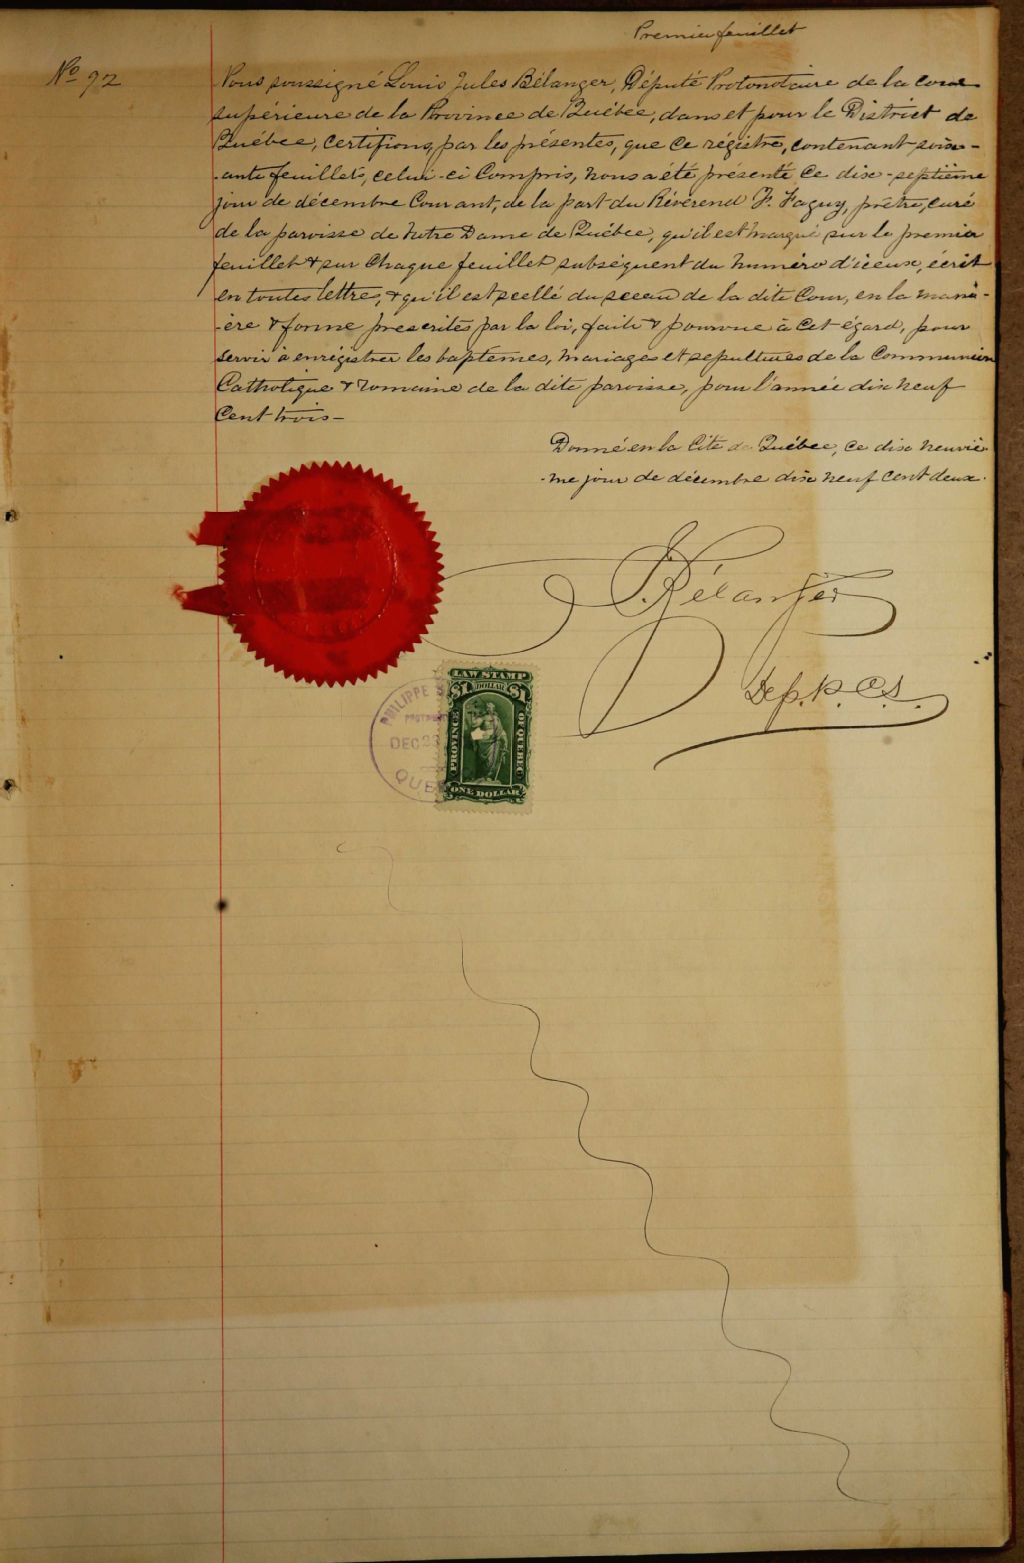 Premier feuillet
No 92
Nous soussigné Louis Jules Bélanger, Député Protonotaire de la cour
supérieure de la Province de Québec, dans et pour le District de
Québec, certifions, par les présentes, que ce régistre, contenant soix-
-ante feuillets, celui-ci compris, nous a été présenté ce dix-septième
jour de décembre courant, de la part du Révérend F. Faguy, prêtre, curé
de la paroisse de Notre Dame de Québec, qu'il est marqué sur le premier
feuillet & sur chaque feuillet subséquent du numéro d'iceux, écrit
en toutes lettre, & qu'il est scellé du sceau de la dite Cour, en la mani-
-ère & forme prescrites par la loi, faite & pourvue à cet égard, pour
servir à enrégistrer les baptêmes, mariages et sepultures de la Communion
Catholique & romaine de la dite paroisse, pour l'année dix neuf
cent trois-
Donné en la Cité de Québec, ce dix neuviè-
-me jour de décembre dix neuf cent deux.
J. Bélanger
Dep. P. C. S.
LAW STAMP
$1 DOLLAR $1
PROVINCE
OF QUEBEC
ONE DOLLAR
PHILIPPE
DEC 23
QUE